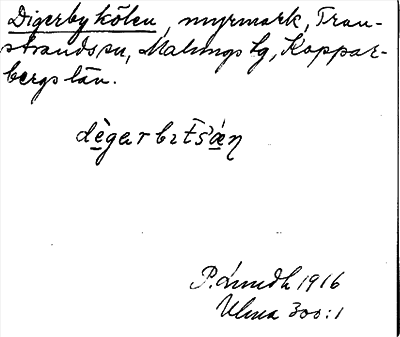 Digerbykölen, myrmark, Tran-
strands sn, Malungs tg, Koppar-
bergs län.
P. Lundh 1916
Ulma 300:1